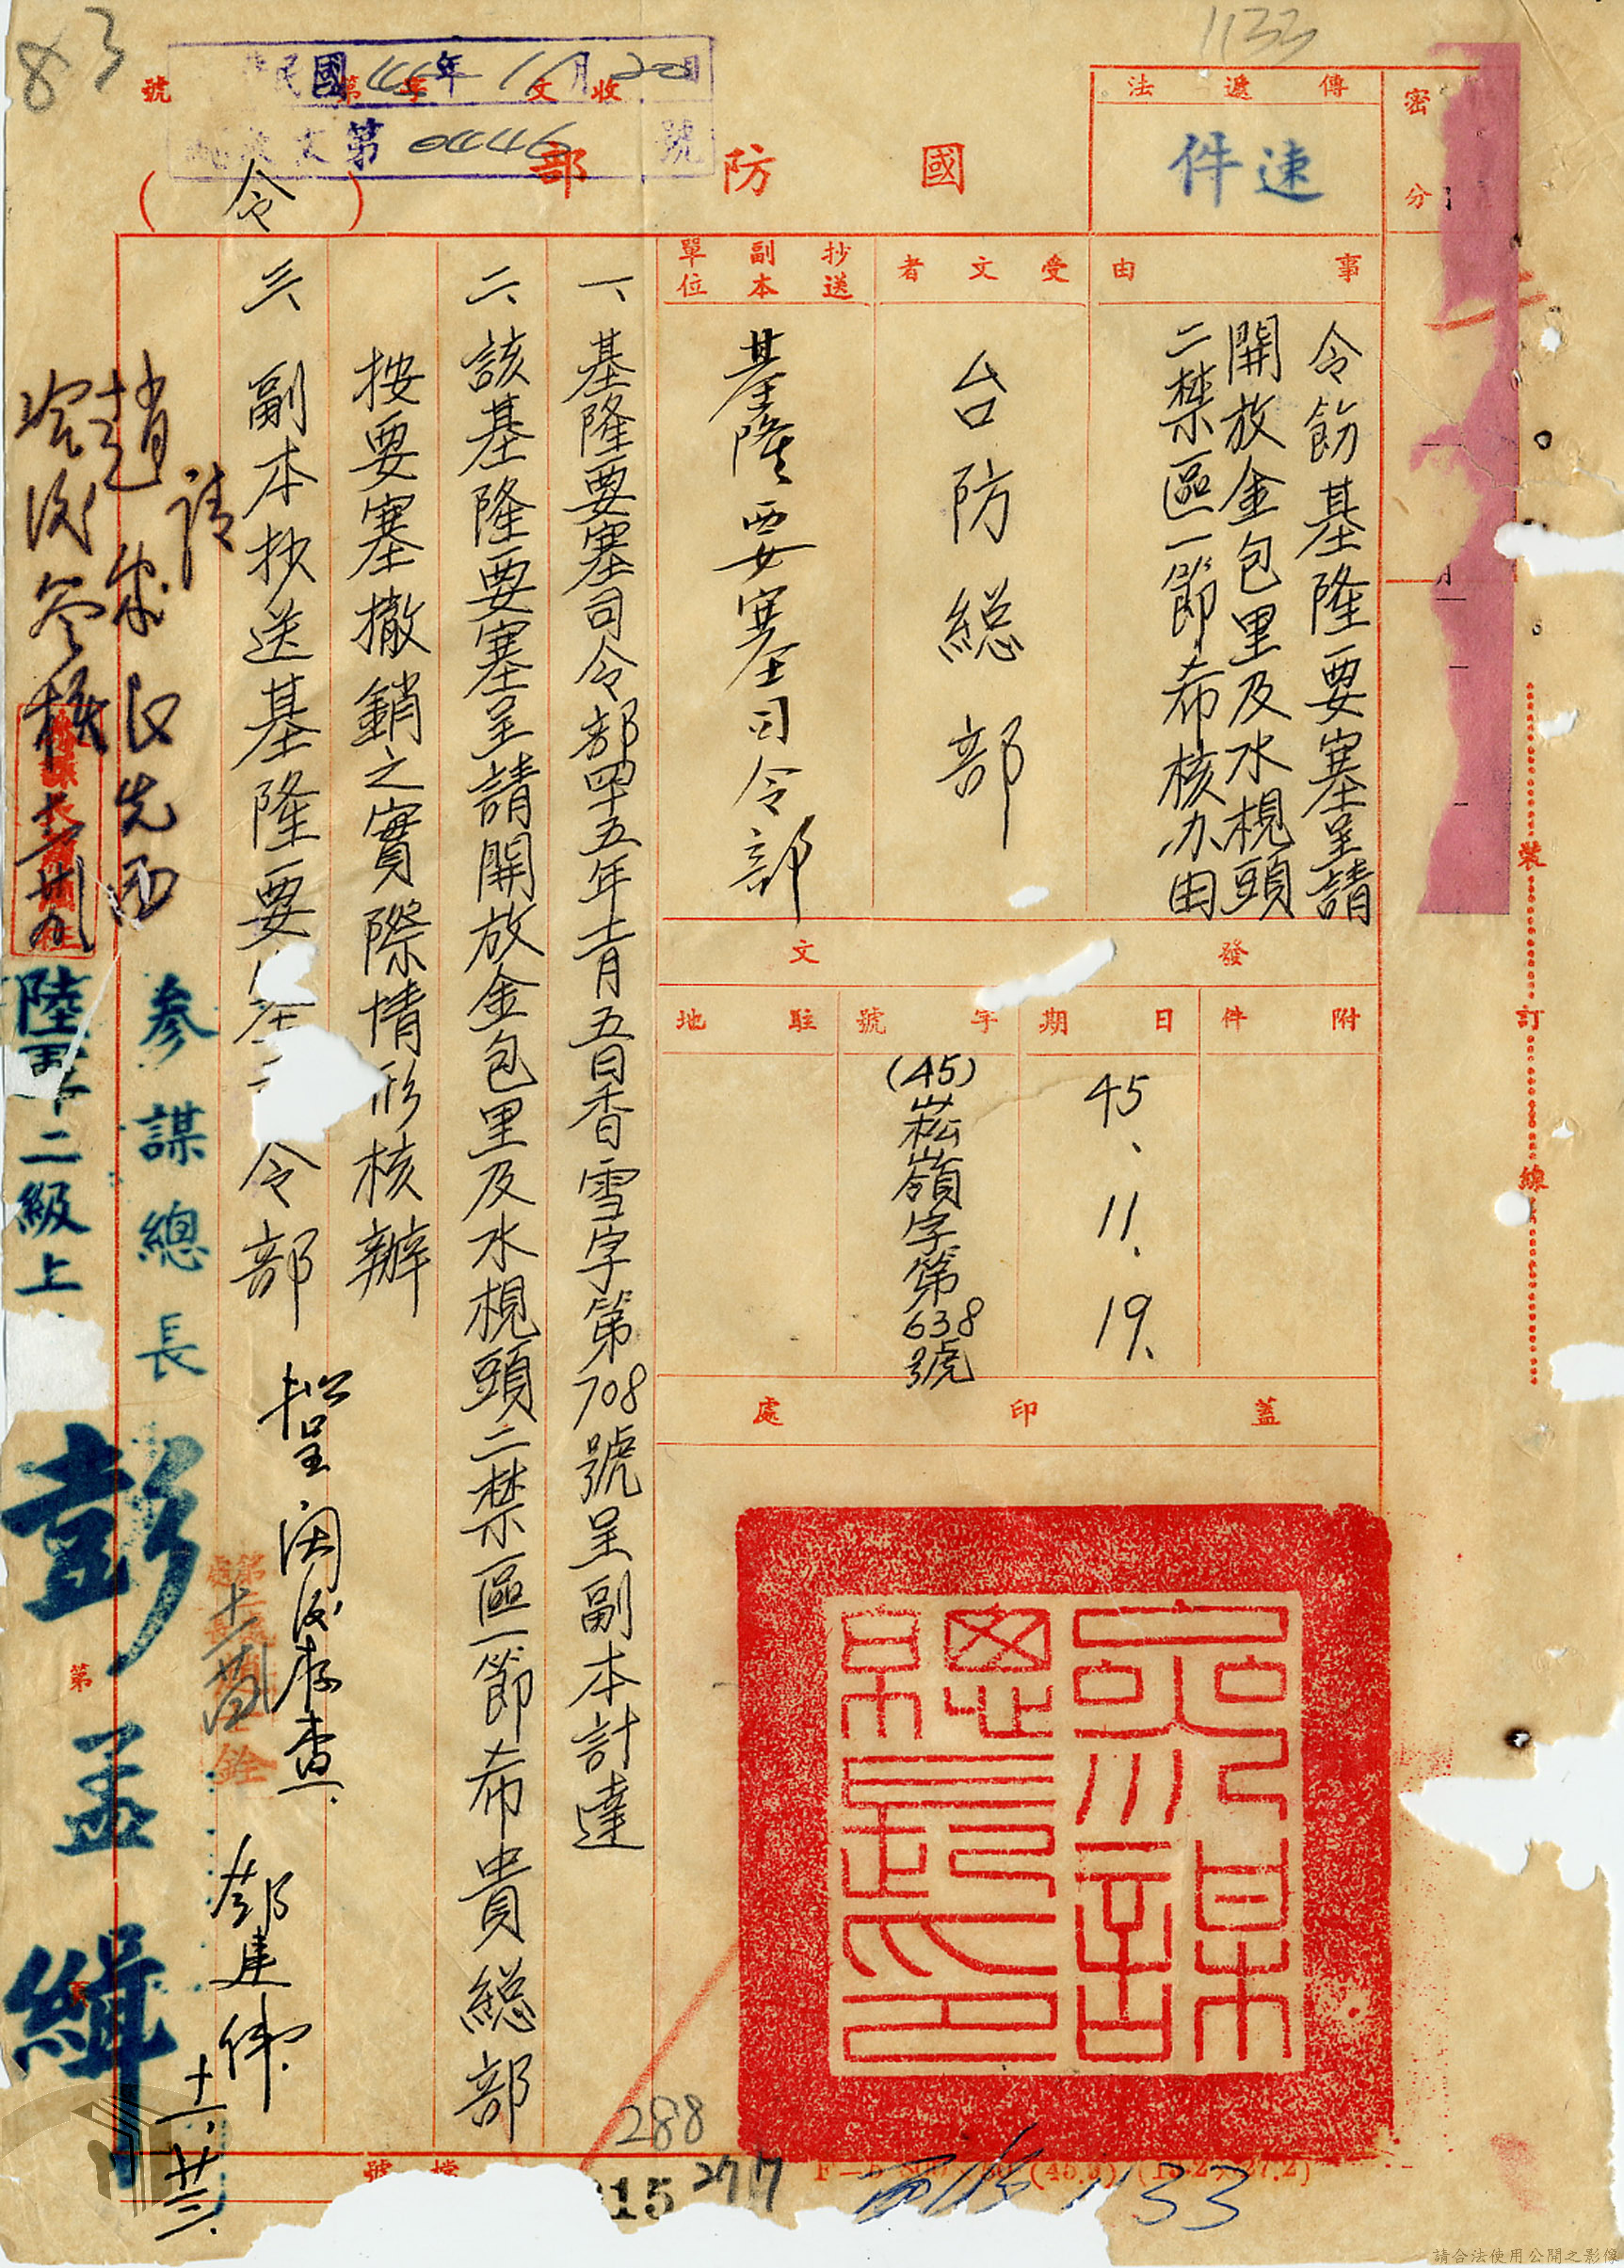 83
1133
密
分
傳遞法
速件
國防部
(令)
收文 字第 號
民國45年11月20日
收文第0446號
事由
令飭基隆要塞呈請
開放金包里及水梘頭
二禁區一節希核办由
受文者
台防総部
抄送副本單位
基隆要塞司令部
發文
附件
日期
45、11、19、
字號
(45)崧嶺字第638號
駐地
蓋印處
參謀總長印
一、基隆要塞司令部四十五年十一月五日香雪字第708號呈副本計達
二、該基隆要塞呈請開放金包里及水梘頭二禁區一節希貴総部
按要塞撤銷之實際情形核辦
三、副本抄送基隆要塞司令部
參謀總長
陸軍二級上
彭孟緝
擬呈閱後存查
十一、廿三、
請
裝
訂
線
第
檔號
288
277
15
1133
請合法使用公開之影像